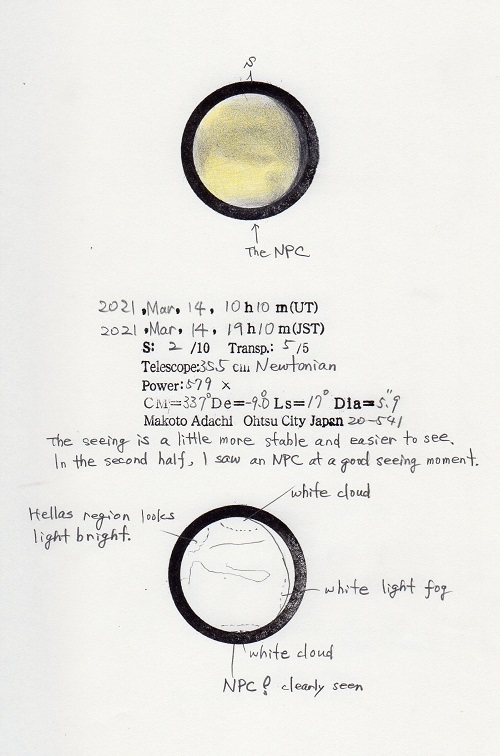 S
The NPC
2021, Mar, 14, 10 h 10 m (UT)
2021, Mar, 14, 19 h 10 m (JST)
S: 2 /10 Transp.: 5 /5
Telescope: 355 cm Newtonian
Power: 579 x
CM=337° De=-9.0° Ls=17° Dia=5."9
Makoto Adachi Ohtsu City Japan 20-541
The seeing is a little more stable and easier to see.
In the second half, I saw an NPC at a good seeing moment.
white cloud
Hellas region looks
light bright.
white light fog
white cloud
NPC! clearly seen